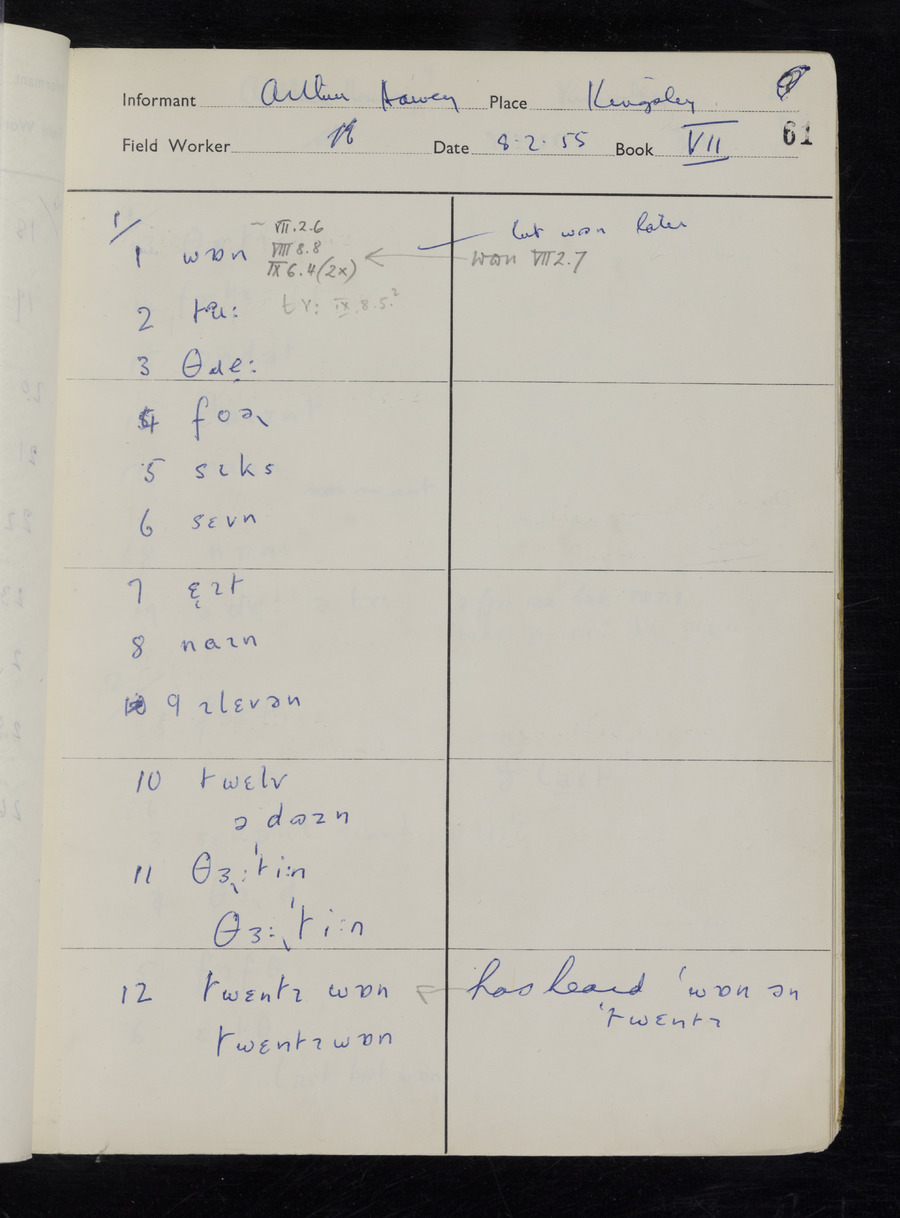 Informant Arthur Place Kingsley
61
Field Worker Date 8.2.55 Book VII
1/
1 wɒn ~ VII.2.6
VIII 8.8
IX 6.4 (2x)
but wɒn later
wɒn VII 2.7
2 tʏ: tʏ: IX.8.5.²
3 θɹi:
4 foəɹ
5 sɪks
6 sɛvn
7 ɛɪt
8 naɪn
9 ɪlɛvən
10 twɛlv
ə dɒzn
11 θɜ:ˈti:n
θɜ:ˈti:n
12 twɛntɪ wɒn has heard ˈwɒn ən
ˈtwɛntɪ
twɛntɪwɒn